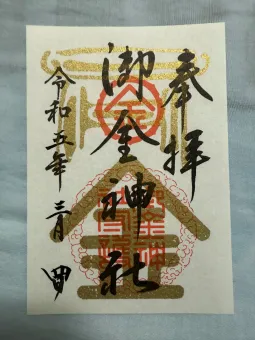 奉拝
御金神社
令和五年三月四日